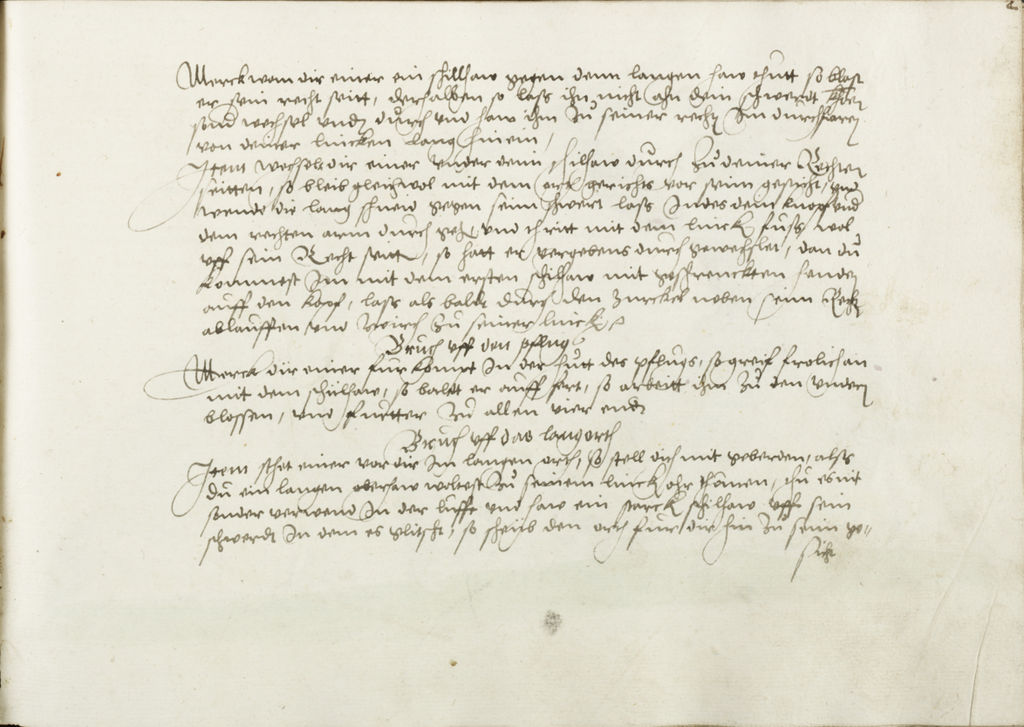 Merck wan dir einer ein schillhaw gegen denn langen haw thutt so blost
er sein recht seitt, derhalben so lass ihn nicht ahn dein schwerdt
sond wechsel undn durch und haw ihm zu seiner rechtn Im durchfaren
von deiner lincken lang hinein,
Item wechselt dir einer under dem schilhaw durch zu deiner Rechten
seitten, so bleib gleichwol mit dem ort gerichts vor seim gesicht, und
wende die lang schneid gegen seim schwert lass Indes dem knopf und
dem rechten arm durch geht, und thritt mit dem linck fuss wol
uff sein Recht seitt, so hatt er vergebens durch gewechslet, dan du
kommest Im mit dem ersten schilhaw mit geschrenckten henden
auff den kopf, lass als baldt durch den zurckel neben seim Recht
ablauffen und zwirch zu seiner linck
Bruch uff den pflug
Merck dir einer fur kompt In der hutt des pflugs, so greif frolich an
mit dem schilhaw, so baldt er auff fert, so arbeitt Ihm zu den undern
blossen, und fuetter zu allen vier end
Bruch uff das langorth
Item sthet einer vor dir Im langen orth, so stell dich mit geberden, alss
du ein langen oberhaw woltest zu seinem linck ohr thonen, thu es nit
sonder verwend In der lufft und haw ein starck schilhaw uff sein
schwerdt In dem es glitscht, so scheub den orth fur dir hin zu seim ge-
sicht